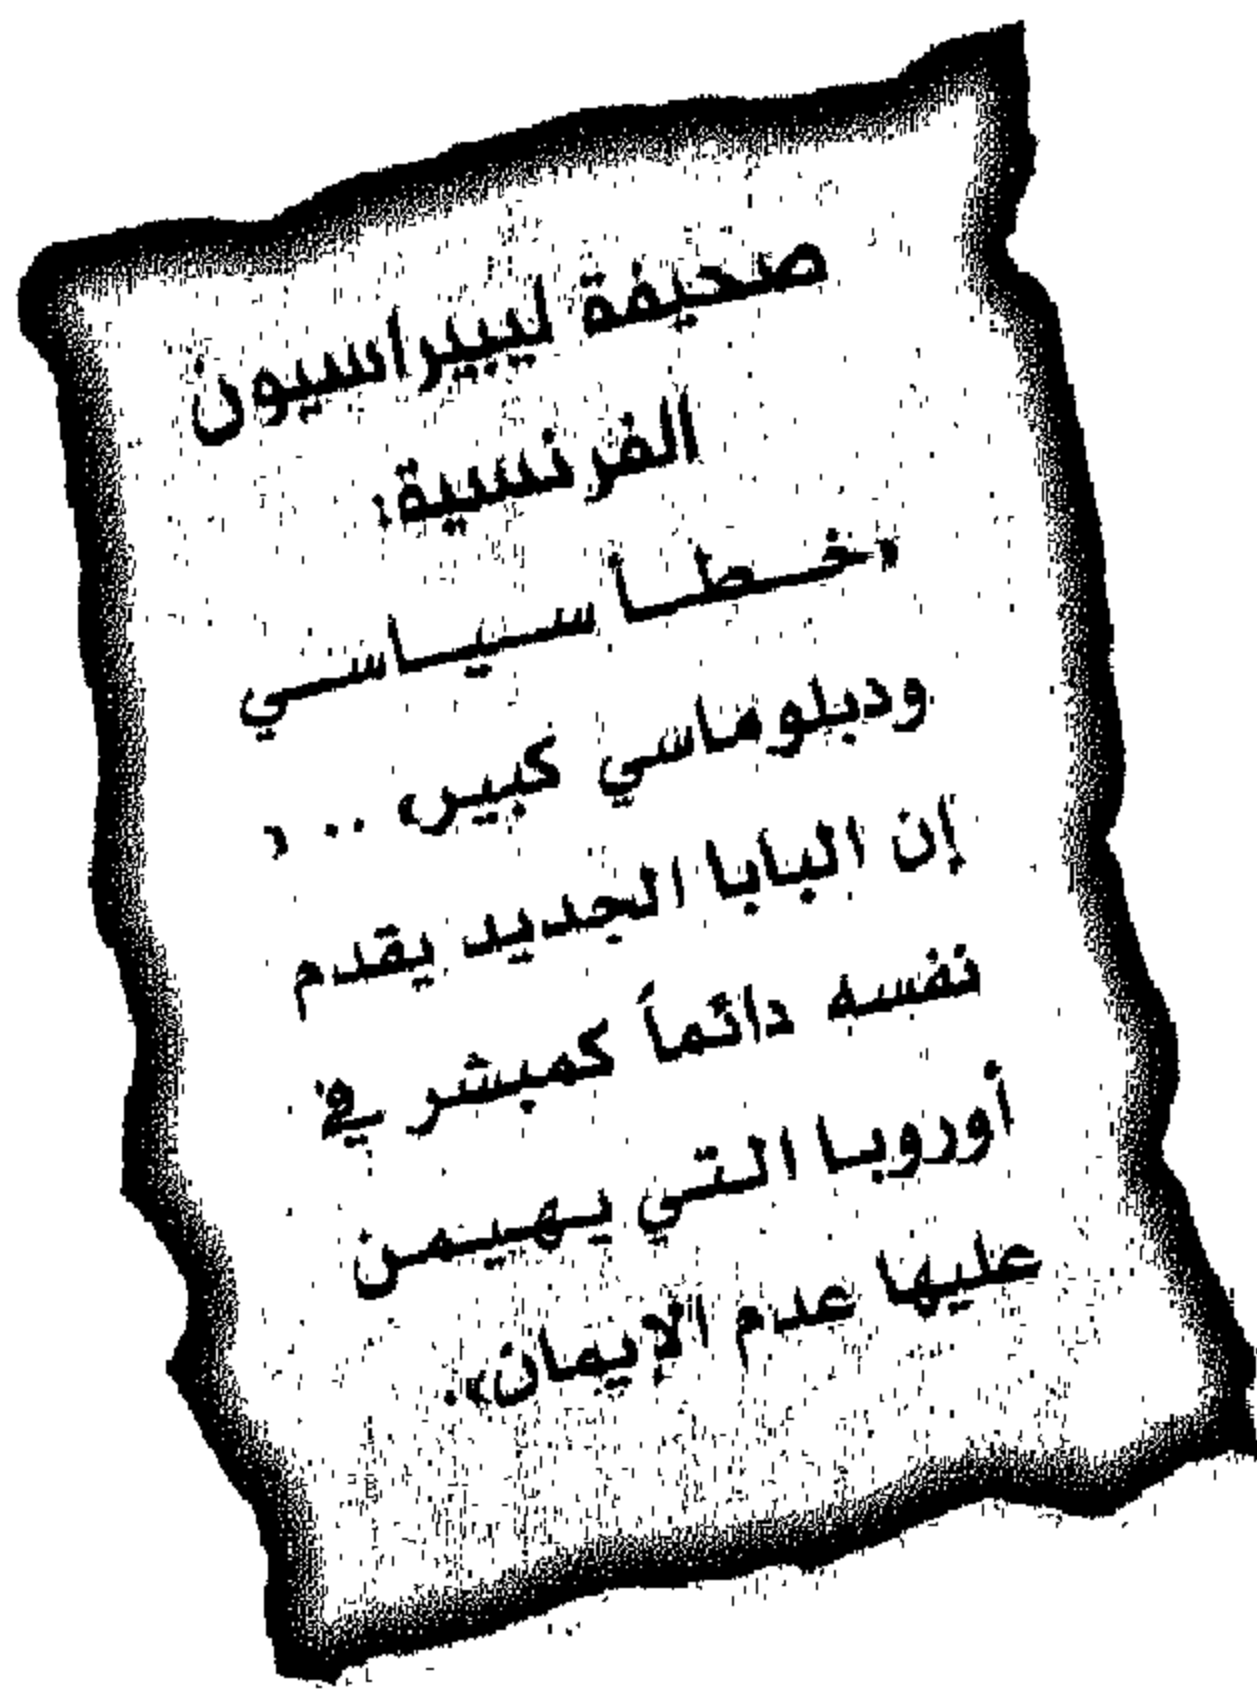 صحيفة ليبيراسيون
الفرنسية:
«خطأ سياسي
ودبلوماسي كبير، .. ،
إن البابا الجديد يقدم
نفسه دائماً كمبشر في
أوروبا التي يهيمن
عليها عدم الإيمان».